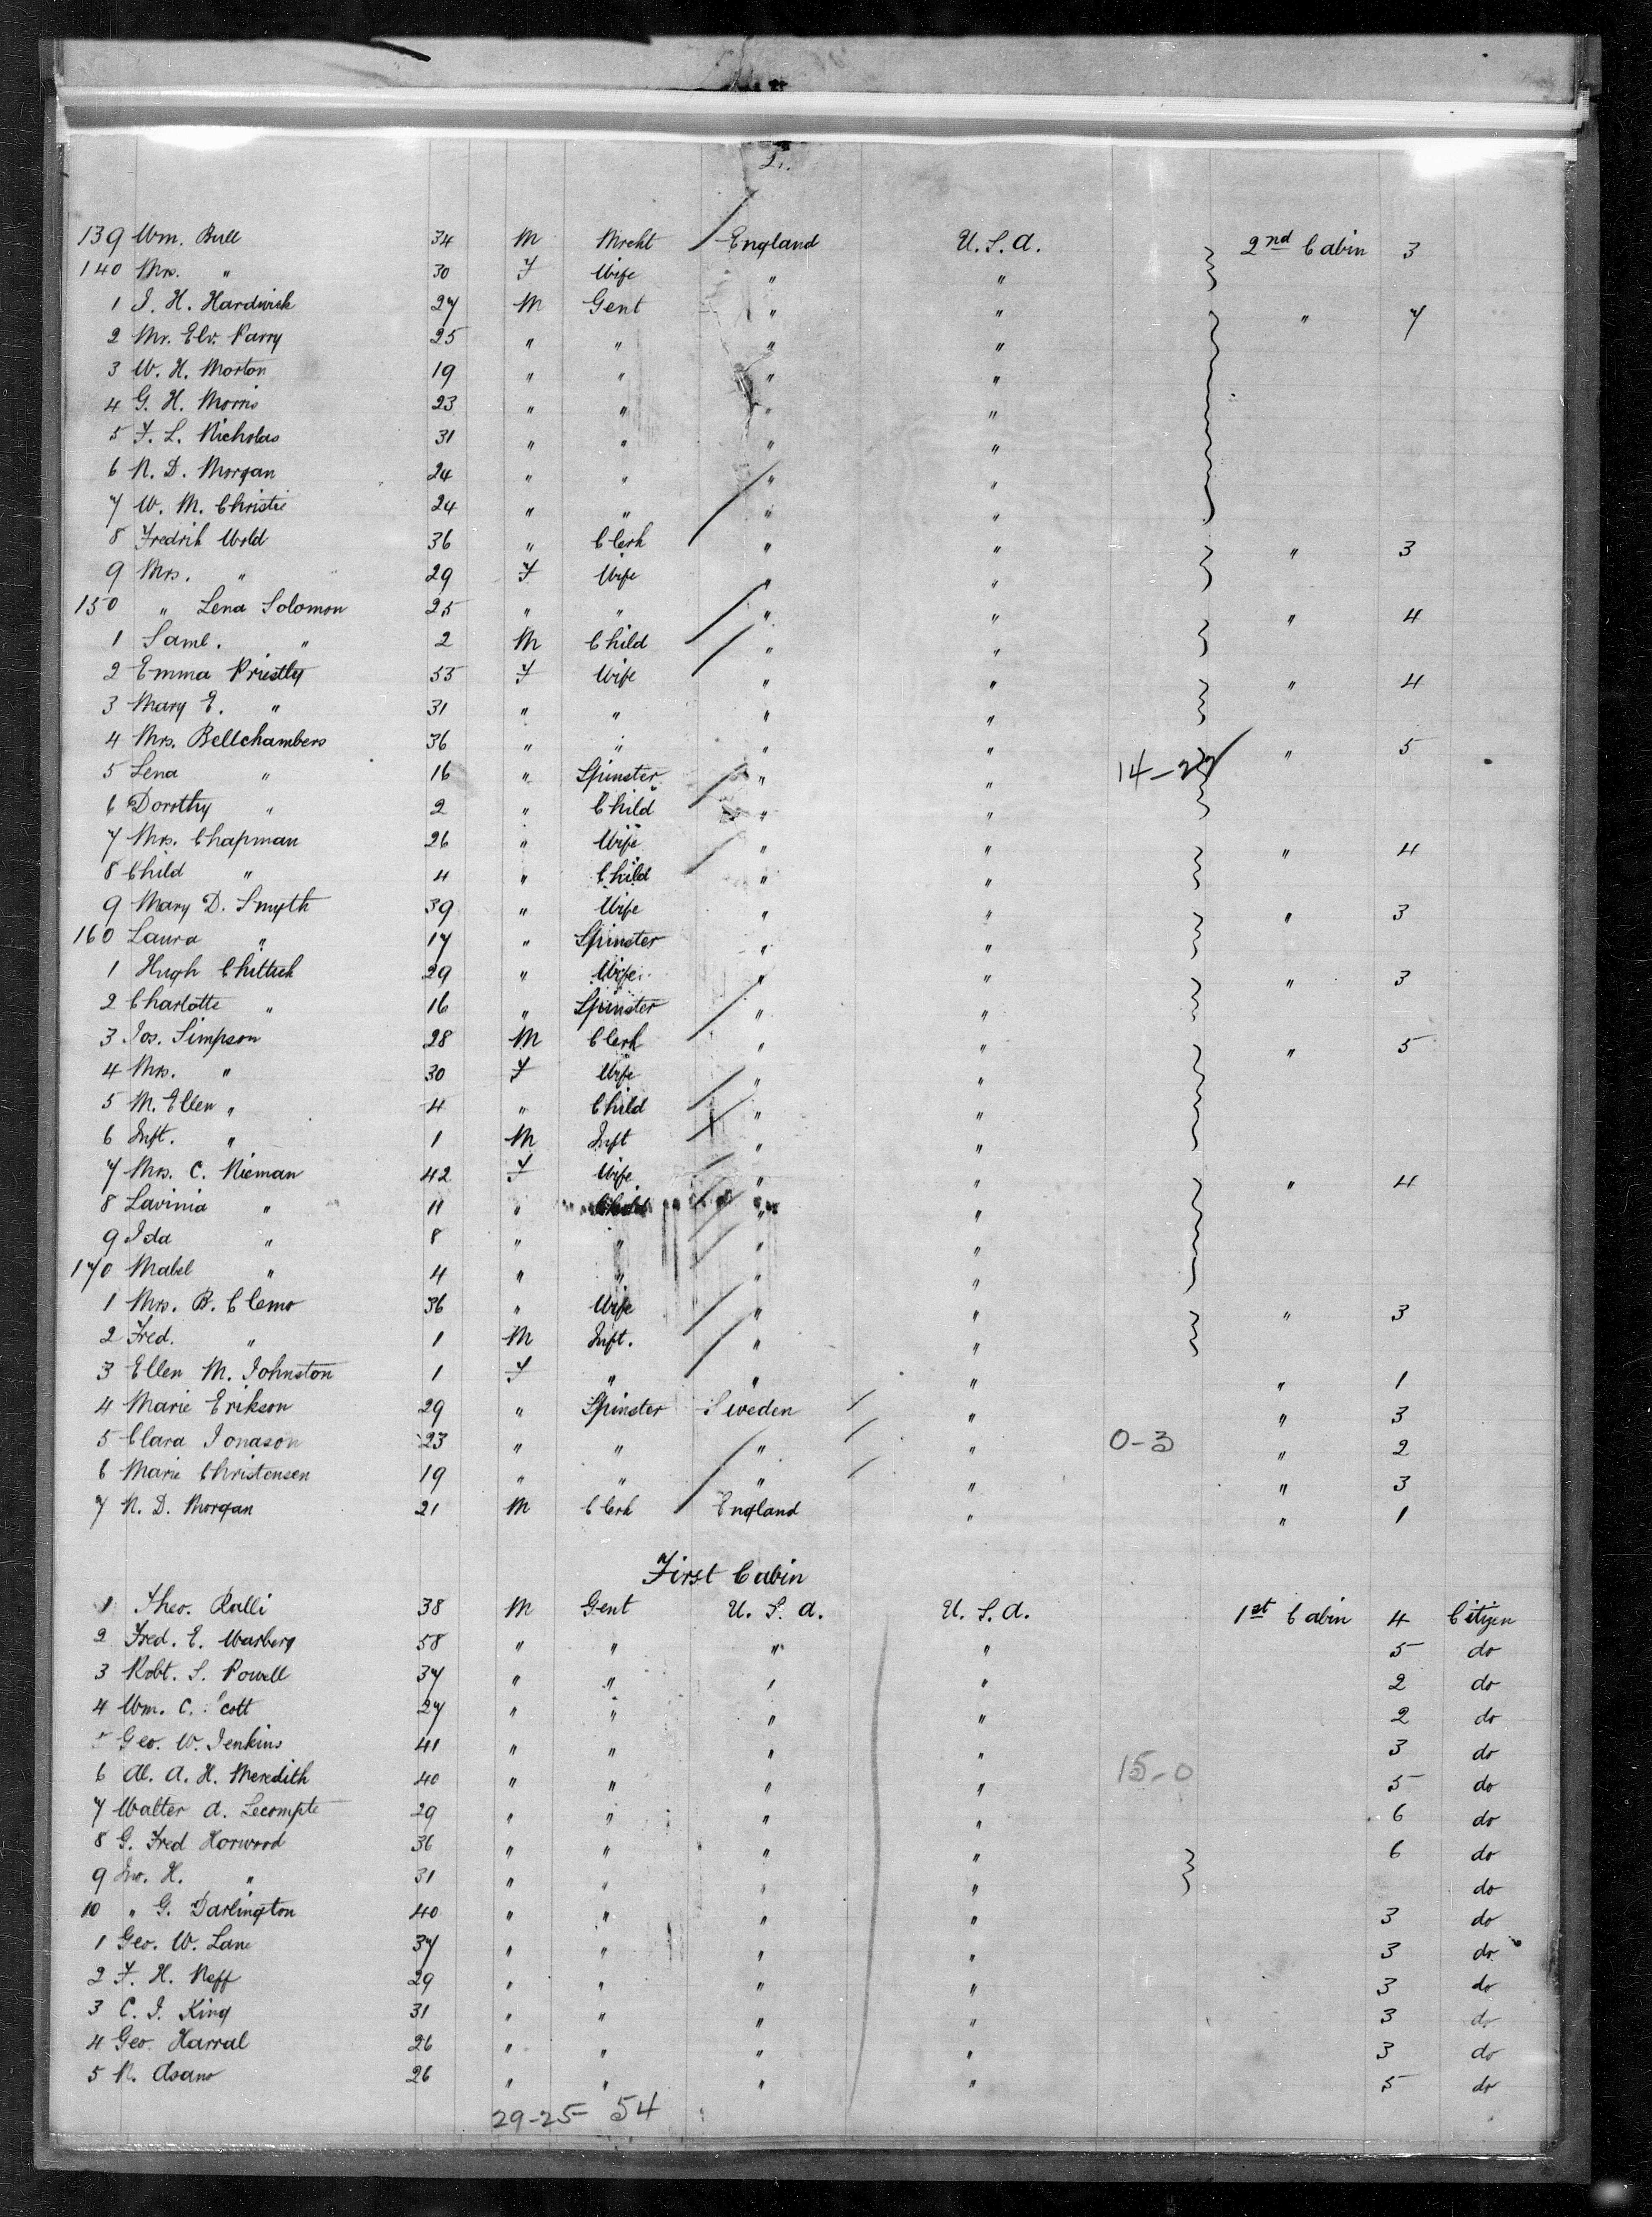 139 Wm. Bull 34 M Mrcht England U.S.A. 2nd Cabin 3
140 Mrs. " 30 F Wife " "
1 J. H. Hardwick 27 M Gent " " " 7
2 Mr. Elv. Parry 25 " " " "
3 W. H. Morton 19 " " " "
4 G. H. Morris 23 " " " "
5 F. L. Nicholas 31 " " " "
6 N. D. Morgan 24 " " " "
7 W. M. Christie 24 " " " "
8 Fredrik Wold 36 " Clerk " " " 3
9 Mrs. " 29 F Wife " "
150 " Lena Solomon 25 " " " " " 4
1 Saml. " 2 M Child " "
2 Emma Priestly 55 F Wife " " " 4
3 Mary E. " 31 " " " "
4 Mrs. Bellchambers 36 " " " " " 5
5 Lena " 16 " Spinster " " 14-22
6 Dorothy " 2 " Child " "
7 Mrs. Chapman 26 " Wife " " " 4
8 Child " 4 " Child " "
9 Mary D. Smyth 39 " Wife " " " 3
160 Laura " 17 " Spinster " "
1 Hugh Chittick 29 " Wife " " " 3
2 Charlotte " 16 " Spinster " "
3 Jos. Simpson 28 M Clerk " " " 5
4 Mrs. " 30 F Wife " "
5 M. Ellen " 4 " Child " "
6 Inft. " 1 M Inft " "
7 Mrs. C. Nieman 42 F Wife " " " 4
8 Lavinia " 11 " Child " "
9 Ida " 8 " " " "
170 Mabel " 4 " " " "
1 Mrs. B. Clemo 36 " Wife " " " 3
2 Fred. " 1 M Inft. " "
3 Ellen M. Johnston 1 F " " " " 1
4 Marie Erikson 29 " Spinster Sweden " " 3
5 Clara Jonason 23 " " " " 0-3 " 2
6 Marie Christensen 19 " " " " " 3
7 N. D. Morgan 21 M Clerk England " " 1
First Cabin
1 Theo. Ralli 38 M Gent U.S.A. U.S.A. 1st Cabin 4 Citizen
2 Fred. E. Warberg 58 " " " " 5 do
3 Robt. S. Powell 37 " " " " 2 do
4 Wm. C. Scott 27 " " " " 2 do
5 Geo. W. Jenkins 41 " " " " 3 do
6 Al. A. H. Meredith 40 " " " " 15-0 5 do
7 Walter A. Lecompte 29 " " " " 6 do
8 G. Fred Horwood 36 " " " " 6 do
9 Jno. H. " 31 " " " " do
10 " G. Darlington 40 " " " " 3 do
1 Geo. W. Lane 37 " " " " 3 do
2 F. H. Neff 29 " " " " 3 do
3 C. J. King 31 " " " " 3 do
4 Geo. Harral 26 " " " " 3 do
5 N. Asano 26 " " " " 5 do
29-25 54